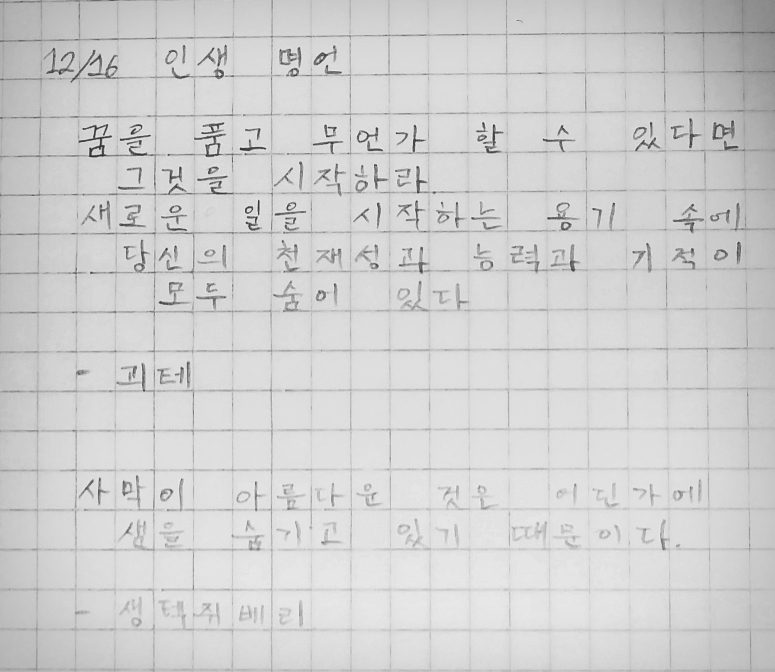 12/16 인생 명언
꿈을 품고 무언가 할 수 있다면
그것을 시작하라.
새로운 일을 시작하는 용기 속에
당신의 천재성과 능력과 기적이
모두 숨어 있다
- 괴테
사막이 아름다운 것은 어딘가에
샘을 숨기고 있기 때문이다.
- 생텍쥐베리